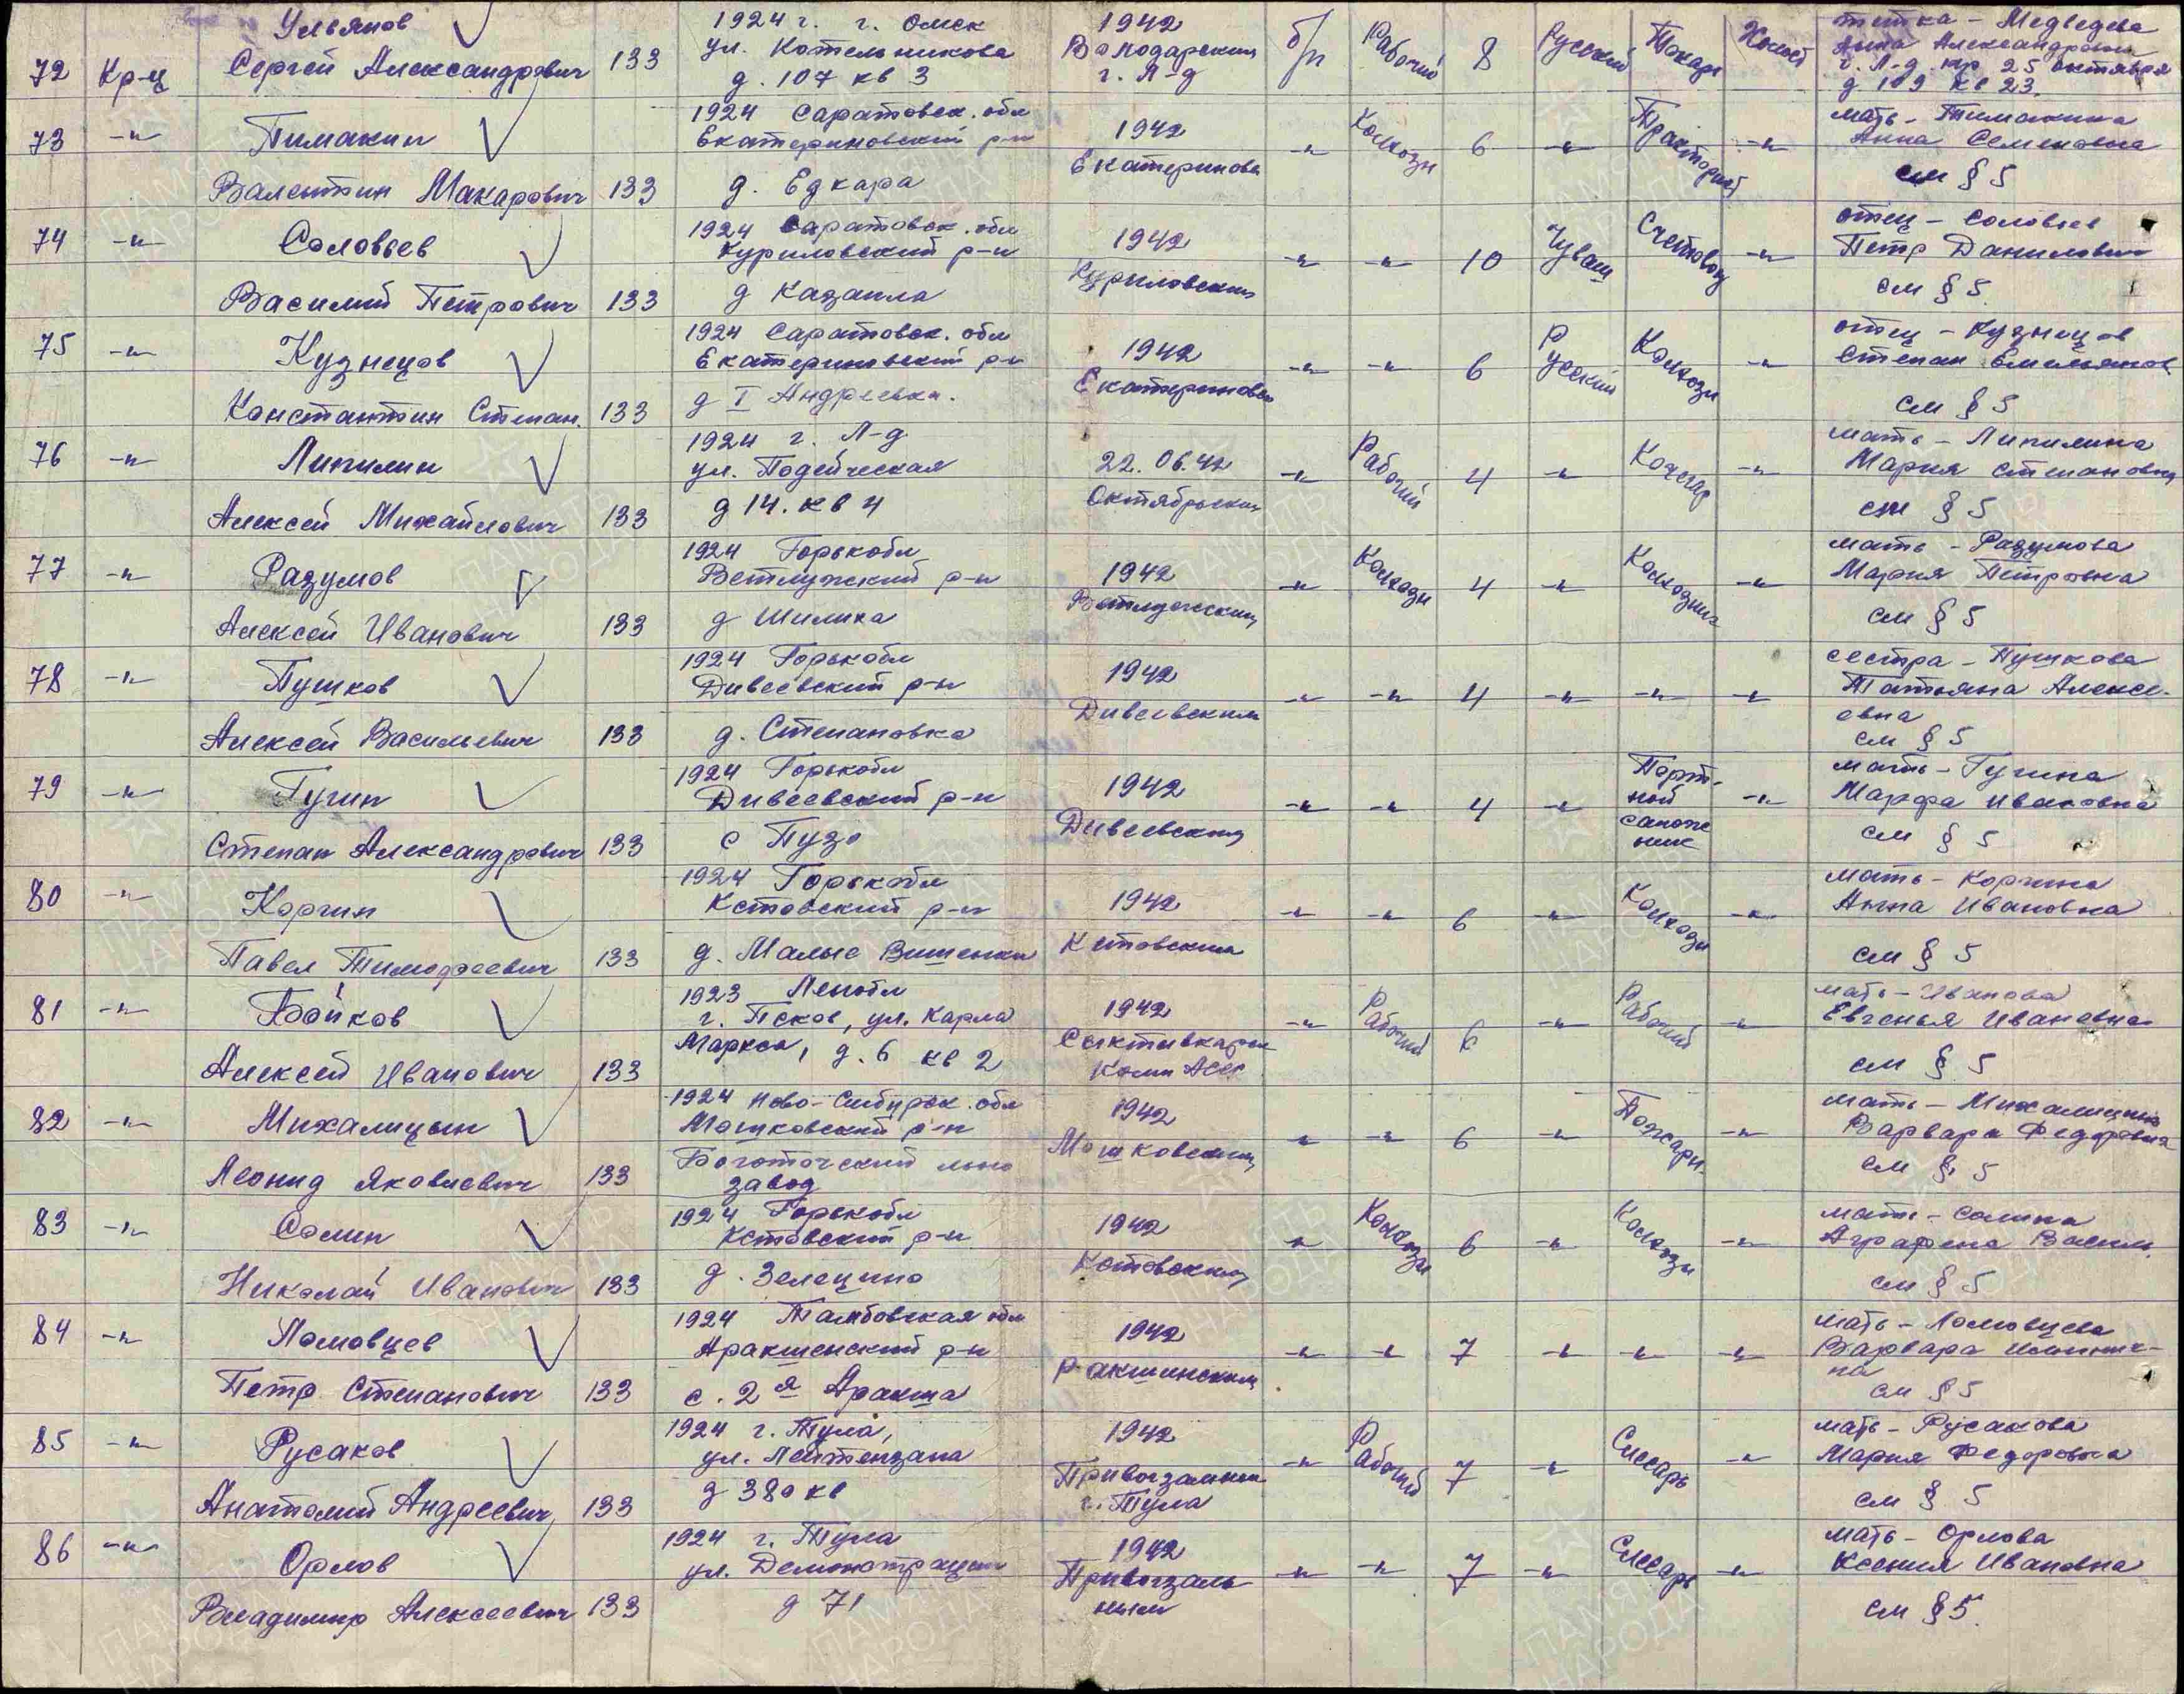 72 Кр-ц Ульянов Сергей Александрович 133 1924 г. г. Омск ул. Котельникова д. 107 кв 3 1942 Володарским г. Л-д б/п Рабочий 8 Русский Токарь Холост тетка - Медведева Анна Александровна г. Л-д пр 25 октября д 109 кв 23.
73 -"- Тимакин Валентин Макарович 133 1924 Саратовск. обл Екатериновский р-н д. Едкара 1942 Екатериновс -"- Колхозн 6 -"- Тракторист -"- мать - Тимакина Анна Семеновна см § 5
74 -"- Соловьев Василий Петрович 133 1924 Саратовск. обл Куриловский р-н д Казанла 1942 Куриловским -"- -"- 10 Чуваш Счетовод -"- отец - Соловьев Петр Данилович см § 5
75 -"- Кузнецов Константин Степан. 133 1924 Саратовск. обл Екатериновский р-н д I Андреевка. 1942 Екатериновс -"- -"- 6 Русский Колхозн -"- отец - Кузнецов Степан Емельянов см § 5
76 -"- Липилин Алексей Михайлович 133 1924 г. Л-д ул. Подейческая д 14. кв 4 22.06.42 Октябрьским -"- Рабочий 4 -"- Кочегар -"- мать - Липилина Мария Степановна см § 5
77 -"- Разумов Алексей Иванович 133 1924 Горькобл Ветлужский р-н д Шилиха 1942 Ветлужским -"- Колхозн 4 -"- Колхозник -"- мать - Разумова Мария Петровна см § 5
78 -"- Пушков Алексей Васильевич 133 1924 Горькобл Дивеевский р-н д. Степановка 1942 Дивеевским -"- -"- 4 -"- -"- -"- сестра - Пушкова Татьяна Алексеевна см § 5
79 -"- Гугин Степан Александрович 133 1924 Горькобл Дивеевский р-н с Пузо 1942 Дивеевским -"- -"- 4 -"- Портной сапожник -"- мать - Гугина Марфа Ивановна см § 5
80 -"- Коргин Павел Тимофеевич 133 1924 Горькобл Кстовский р-н д. Малые Вишенки 1942 Кстовским -"- -"- 6 -"- Колхозн -"- мать - Коргина Анна Ивановна см § 5
81 -"- Бойков Алексей Иванович 133 1923 Ленобл г. Псков, ул. Карла Маркса, д. 6 кв 2 1942 Сыктывкарск Коми АССР -"- Рабочий 6 -"- Рабочий -"- мать - Иванова Евгенья Ивановна см § 5
82 -"- Михалицын Леонид Яковлевич 133 1924 Ново-Сибирск. обл Мошковский р-н льно завод 1942 Мошковским -"- -"- 6 -"- Пожарн. -"- мать - Михалицына Варвара Федоровна см § 5
83 -"- Солин Николай Иванович 133 1924 Горькобл Кстовский р-н д. Зелецино 1942 Кстовским -"- Колхозн 6 -"- Колхозн -"- мать - Солина Аграфена Василь. см § 5
84 -"- Ломовцев Петр Степанович 133 1924 Тамбовская обл Аракшенский р-н с. 2я Аракша 1942 Ракшинским -"- -"- 7 -"- -"- -"- мать - Ломовцева Варвара см § 5
85 -"- Русаков Анатолий Андреевич 133 1924 г. Тула, ул. Лейтензана д 380 кв 1942 Привокзальным г. Тула -"- Рабочий 7 -"- Слесарь -"- мать - Русакова Мария Федоровна см § 5
86 -"- Орлов Владимир Алексеевич 133 1924 г. Тула ул. Демонстрации д 71 1942 Привокзальным -"- -"- 7 -"- Слесарь -"- мать - Орлова Ксения Ивановна см § 5.